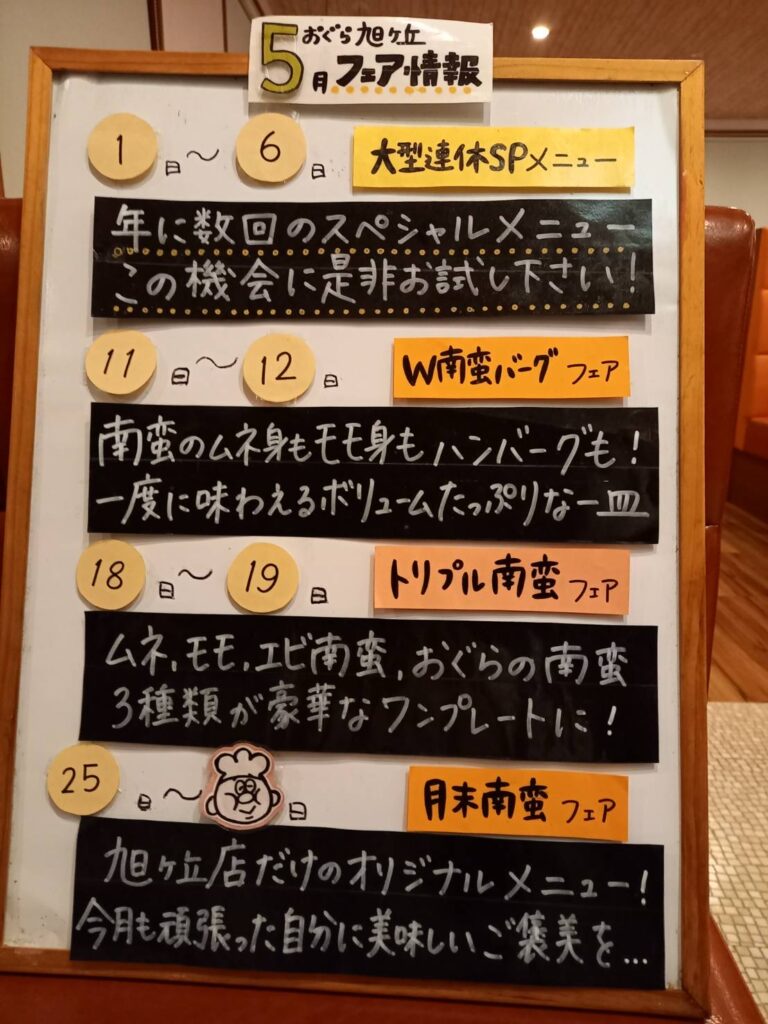 おぐら旭ヶ丘
5月フェア情報
1日〜6日 大型連休SPメニュー
年に数回のスペシャルメニュー
この機会に是非お試し下さい！
11日〜12日 W南蛮バーグフェア
南蛮のムネ身もモモ身もハンバーグも！
一度に味わえるボリュームたっぷりな一皿
18日〜19日 トリプル南蛮フェア
ムネ,モモ,エビ南蛮,おぐらの南蛮
3種類が豪華なワンプレートに！
25日〜日 月末南蛮フェア
旭ヶ丘店だけのオリジナルメニュー！
今月も頑張った自分に美味しいご褒美を…